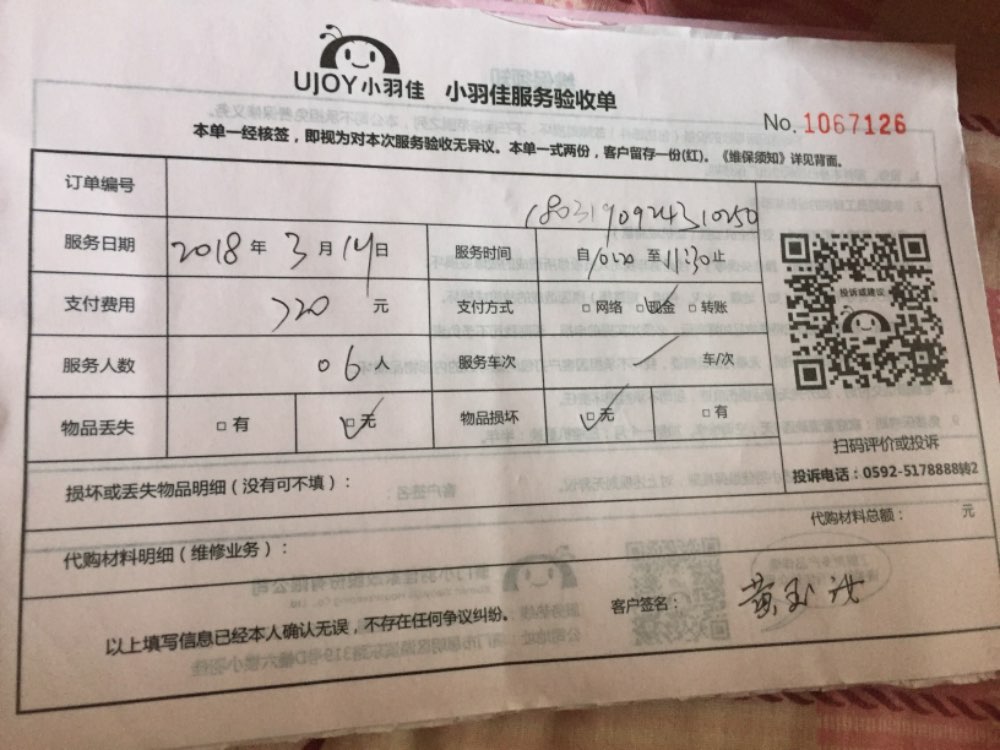 UJOY小羽佳 小羽佳服务验收单
No. 1067126
本单一经核签，即视为对本次服务验收无异议。本单一式两份，客户留存一份(红)。《维保须知》详见背面。
订单编号 1803190924310250
服务日期 2018 年 3 月 14 日 服务时间 自 至 11:30 止
支付费用 720 元 支付方式 □ 网络 □ 现金 □ 转账
服务人数 06 人 服务车次 车/次
物品丢失 □ 有 □ 无 物品损坏 □ 无 □ 有
投诉或建议
扫码评价或投诉
投诉电话：0592-5178888转2
损坏或丢失物品明细（没有可不填）：
代购材料明细（维修业务）： 代购材料总额： 元
以上填写信息已经本人确认无误，不存在任何争议纠纷。 客户签名： 黄玉